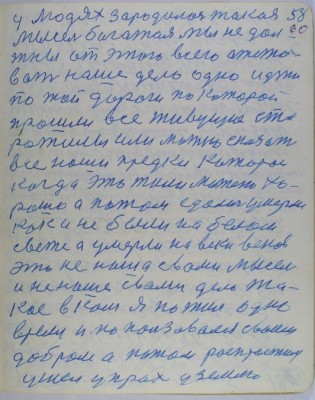 у людях зародилося такая 58
мысел богатая мы не дол 60
жны от этого всего отсто-
вать наше дело одно идти
по той дороги по которой
прошли все живущие ста
рожилы или можно сказат
все наши предки которои
когда это жили может хо-
рошо а потом сдались умерли
как и не были на белом
свете а умерли на веки веков
это не наша с вами мысел
и не наше с вами дело та-
кое в ком я пожил одно
время и попользовался своим
добром а потом распростил
ушел у прах у землю